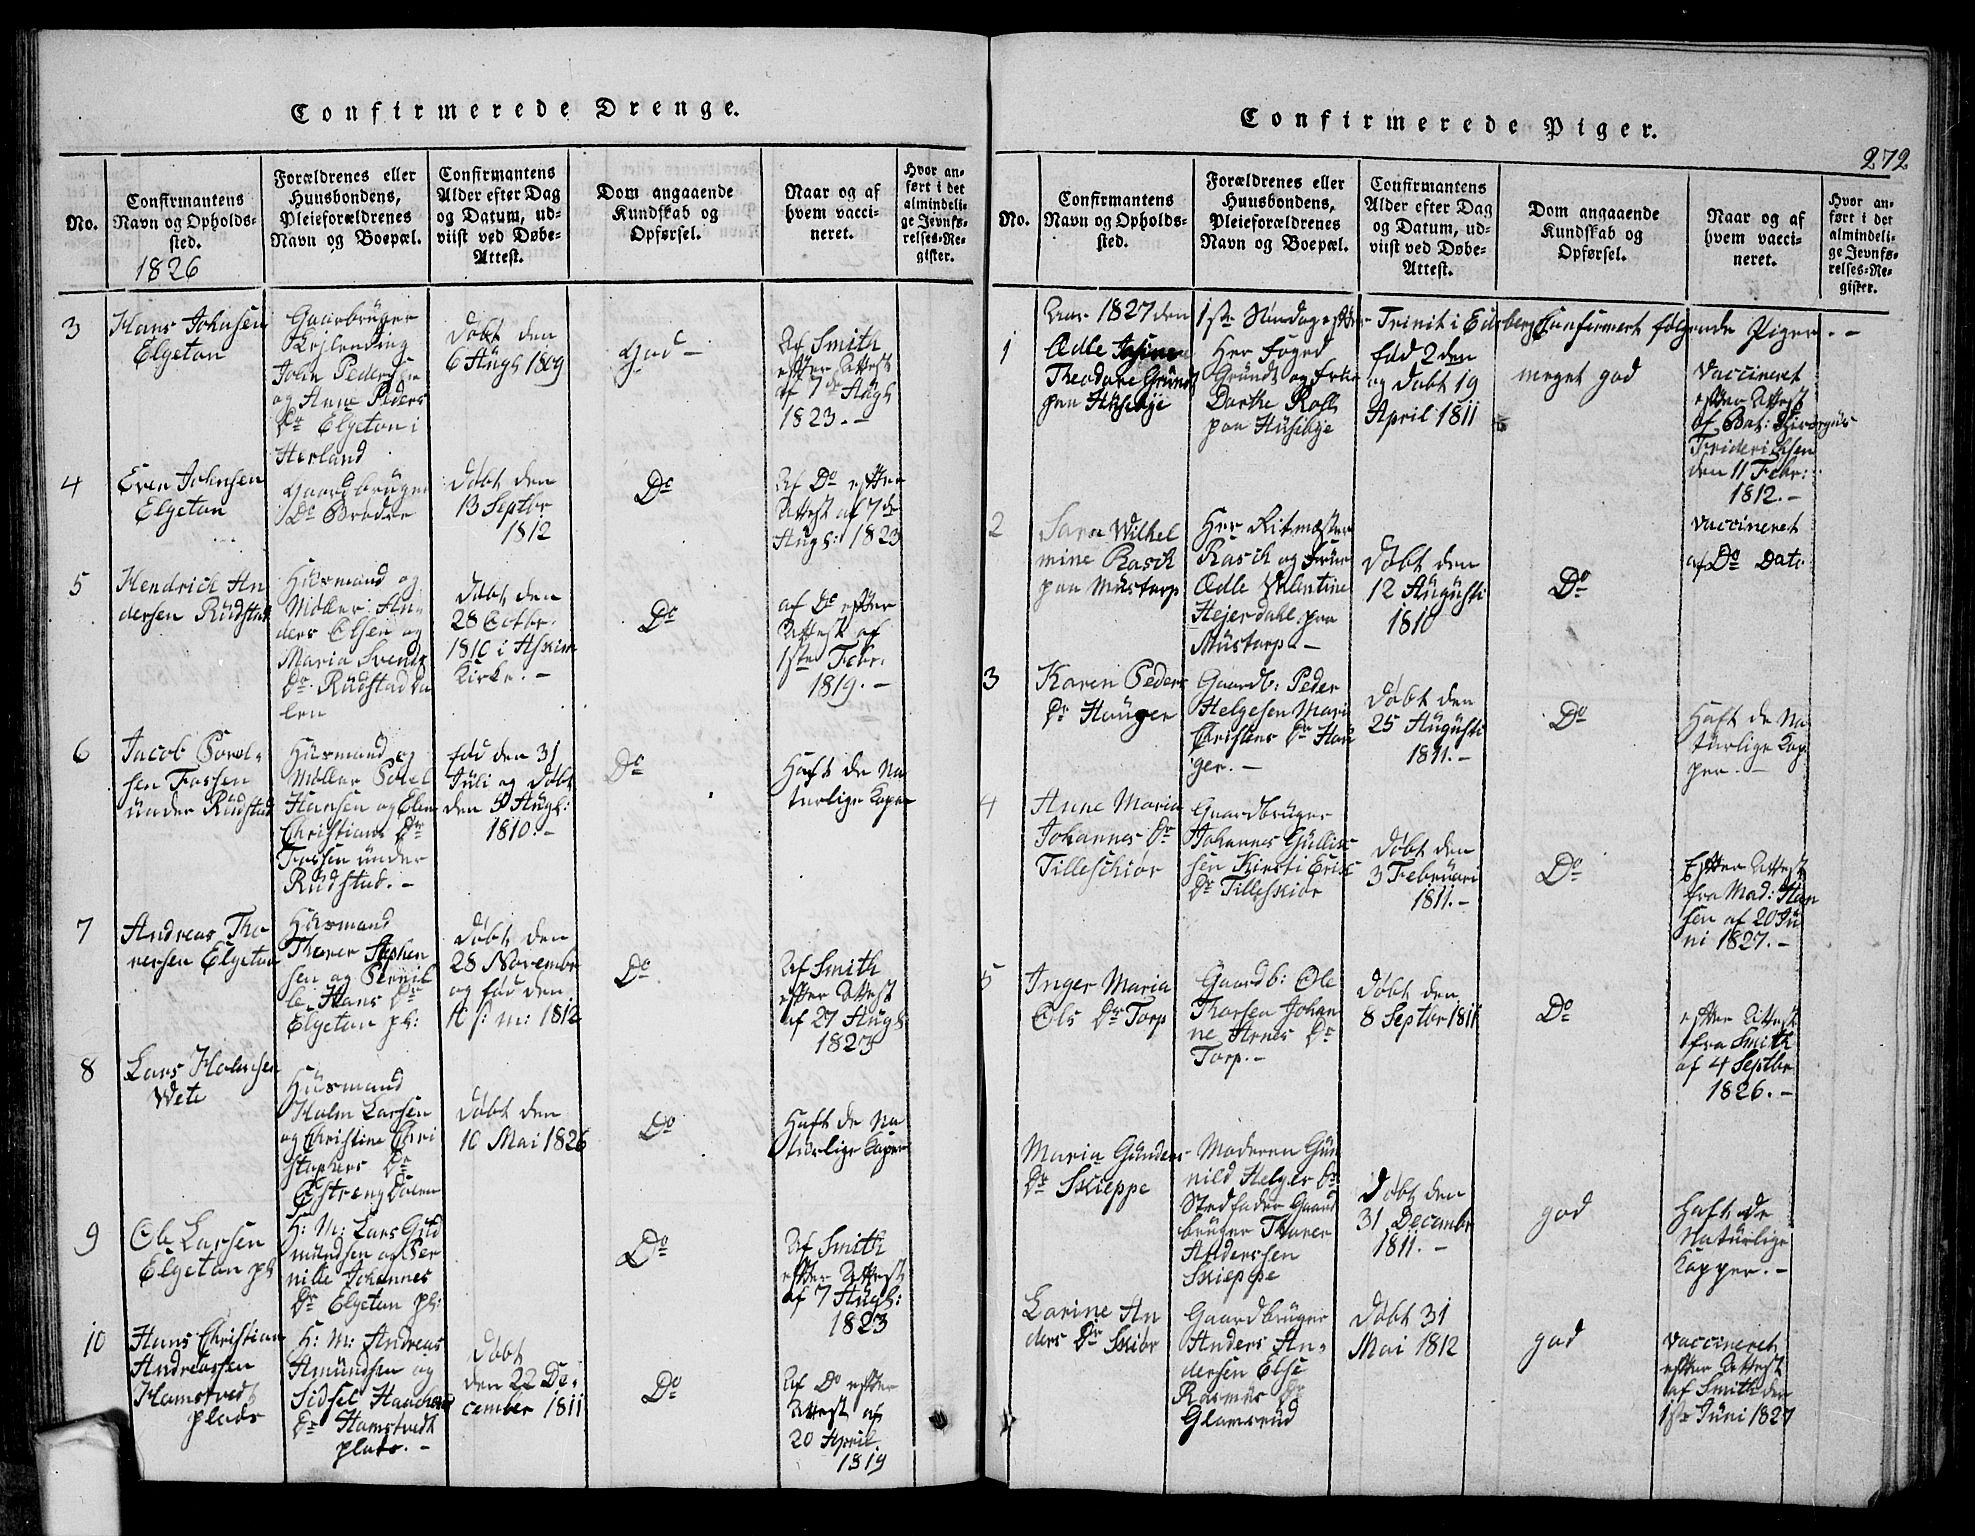 Confirmerede Drenge.
No.
Confirmantens
Navn og Opholds-
sted.
1826
Forældrenes eller
Huusbondens,
Pleieforældrenes
Navn og Boepæl.
Confirmantens
Alder efter Dag
og Datum, ud-
viist ved Døbe-
Attest.
Dom angaaende
Kundskab og
Opførsel.
Naar og af
hvem vacci-
neret.
Hvor an-
ført i det
almindeli-
ge Jevnfø-
relses-Re-
gister.
3
Hans Johnsen
Elgeton
Gaarbrüger
John Pedersen
og Anne Peders
Dr Elgeton i
Herland
Døbt den
6 Augh 1809
god —
Af Smith
efter Attest
af 7de Augh
1823. —
4
Even Johnsen
Elgeton
Gaardbrüger
Do Brüder
Døbt den
13 Septbr
1812
Do
Af Do efter
Attest af 7de
Augh: 1823
5
Hendrich An
dersen Rüdstad
Hüsmand og
Møller An-
ders Olsen og
Maria Svends
Dr. Rüdstad Da
len
Døbt den
28 Octbr.
1810 i Askim
Kirke. —
Do
af Do efter
Attest af
1ste Febr.
1819. —
6
Jacob Povel-
sen Fossen
ünder Rüdstad
Hüsmand og
Møller Povel
Hansen og Elen
Christians Dr
Fossen ünder
Rüdstad. —
fød den 31
Jüli og døbt
den 5 Augh:
1810. —
Do
Haft de Na
turlige Koper
7
Andreas Tho
rersen Elgeton
Hüsmand
Thorer Stephen
sen og Pernil
le Hans Dr
Elgeton pl:
Døbt den
28 Novembr
og fød den
10 s: m: 1812
Do
Af Smith
efter Attest
af 27 Augh
1823
8
Lars Holmsen
Wete
Hüsmand
Holm Larsen
og Christine Chri
stophers Dr
Østreng Dalen
Døbt den
10 Mai 1826
Do
Haft de Na
türlige Koper
9
Ole Larsen
Elgeton pl
H: M: Lars Gud
mündsen og Per
nille Johannes
Dr Elgeton pl:
Do
Af Smith
efter Attest
af 7 Augh:
1823
10
Hans Christian
Andreassen
Hamstvedt
plads
H: M: Andreas
Amündsen og
Sidsel Haachens
Dr Hamstvedt
plads. —
Døbt
den 22 De-
cember 1811
Do
Af Do efter
Attest af
20 April
1819
Confirmerede Piger.
272
No.
Confirmantens
Navn og Opholds-
sted.
Forældrenes eller
Huusbondens,
Pleieforældrenes
Navn og Boepæl.
Confirmantens
Alder efter Dag
og Datum, ud-
viist ved Døbe-
Attest.
Dom angaaende
Kundskab og
Opførsel.
Naar og af
hvem vacci-
neret.
Hvor an-
ført i det
almindeli-
ge Jevnfø-
relses-Re-
gister.
Aar 1827 den 1ste Søndag efter Trinit i Eidsberg Confirmert følgende Piger. —
1
Ædle Josine
Theodore Gründt
paa Hüsebye
Her Foged
Gründt og Frue
Dorthe Roll
paa Hüsebye
fød 2den
og døbt 19
April 1811
meget god
Vaccineret
efter Attest
af Bat: Kirurgüs
Friderichsen
den 11 Febr:
1812. —
2
Sara Wilhel
mine Rasch
paa Müstorp
Her Ritmester
Rasch og Frue
Ædle Valentine
Hejerdahl paa
Müstorp. —
Døbt den
12 Augüsti
1810
Do
vaccineret
af Do Dato
3
Karen Peders
Dr Haüger
Gaardb: Peder
Helgesen Mari
Christens Dr Haü
ger. —
Døbt den
25 Augüsti
1811. —
Do
Haft de Na
türlige Kop
per. —
4
Anne Maria
Johannes Dr
Tilleschiør
Gaardbrüger
Johannes Gullic
sen Kirsti Erics
Dr Tilleskiør
Døbt den
3 Februari
1811. —
Do
Efter Attest
fra Mad: Han
sen af 20 Jü
ni 1827. —
5
Inger Maria
Ols Dr Torp
Gaardb: Ole
Thorsen Johan
ne Arnes Dr
Torp. —
Døbt den
8 Septbr 1811
Do
efter Attest
fra Smith
af 4 Septbr
1826. —
Maria Günders
Dr Skieppe
Moderen Gün
nild Helges Dr
Stedfader Gaard
brüger Thorer
Anderssen
Skieppe
Døbt den
31 Decembr
1811. —
god
Haft de
Natürlige
Kopper. —
Larine An
ders Dr Skiør
Gaardbrüger
Anders An-
dersen Else
Rasmüs Dr
Glamsrüd
Døbt 31
Mai 1812
god
vaccineret
efter Attest
af Smith den
1ste Jüni 1827